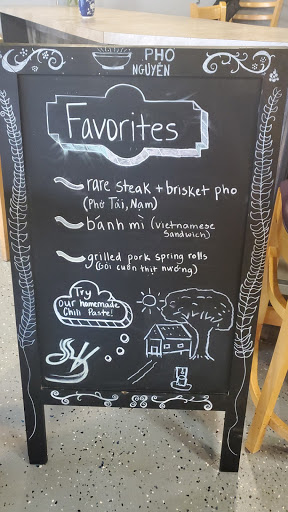 PHO
NGUYÊN
Favorites
rare steak + brisket pho
(Phở Tái, Nam)
bánh mì (vietnamese
Sandwich)
grilled pork spring rolls
(Gỏi cuốn thịt nướng)
Try
our homemade
Chili Paste!